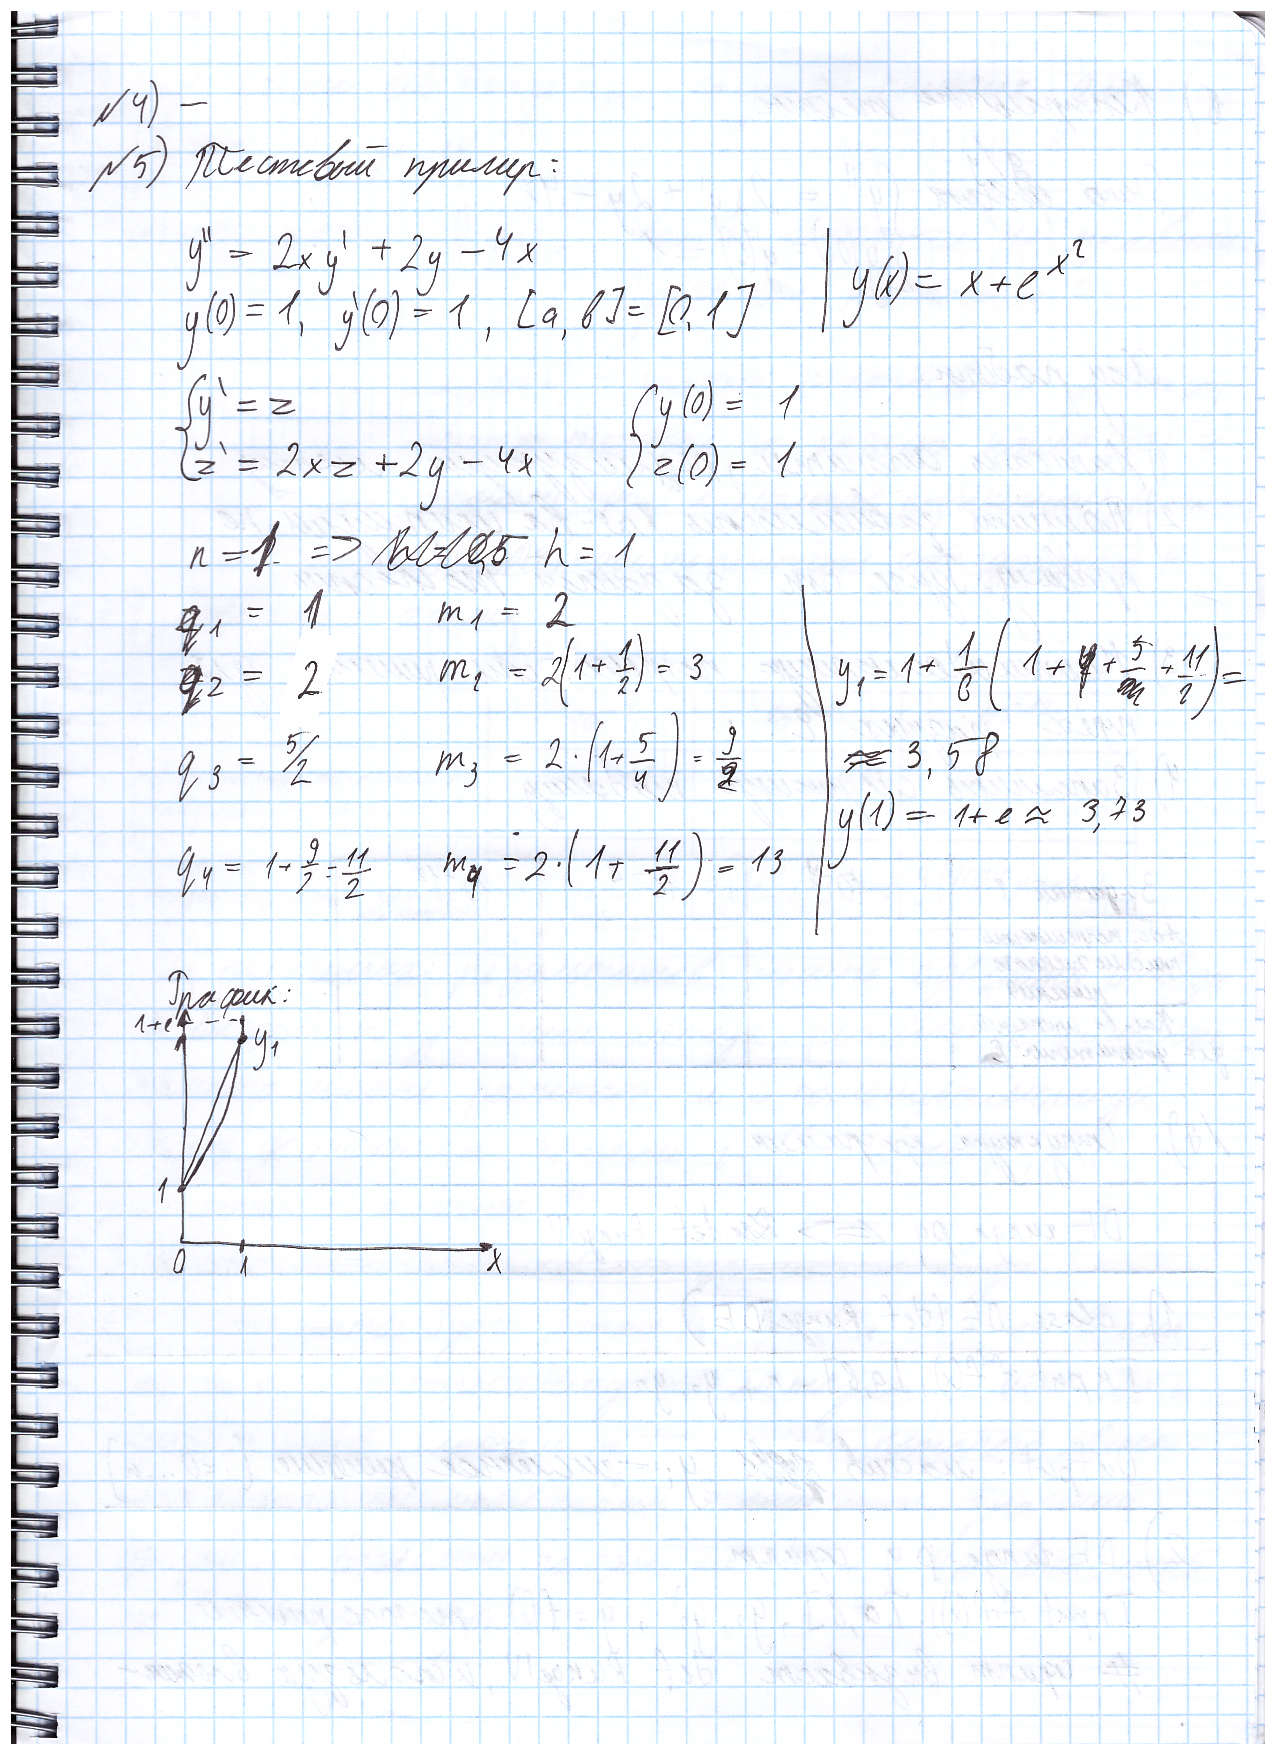 №4) —
№5) Тестовый пример:
y'' = 2xy' + 2y − 4x
y(0) = 1, y'(0) = 1, [a, b] = [0, 1]
y(x) = x + e^{x^2}
{ y' = z
z' = 2xz + 2y − 4x
{ y(0) = 1
z(0) = 1
n = 1 => h = 1
q_1 = 1 m_1 = 2
q_2 = 2 m_2 = 2(1 + 1/2) = 3
q_3 = 5/2 m_3 = 2·(1 + 5/4) = 9/2
q_4 = 1 + 9/2 = 11/2 m_4 = 2·(1 + 11/2) = 13
y_1 = 1 + 1/6 (1 + 4 + 5 + 11/2) =
≈ 3,58
y(1) = 1 + e ≈ 3,73
График:
1+e
y_1
1
0 1 x